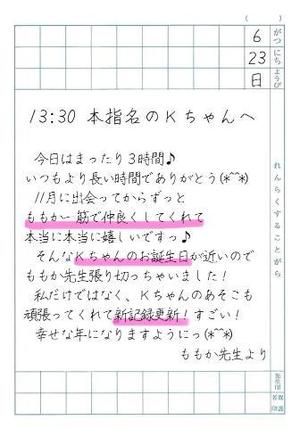 ( )
6 がつ
23 にち
日 ようび
れんらくすることがら
13:30 本指名のKちゃんへ
今日はまったり3時間♪
いつもより長い時間でありがとう(*^^*)
11月に出会ってからずっと
ももか一筋で仲良くしてくれて
本当に本当に嬉しいですっ♪
そんなKちゃんのお誕生日が近いので
ももか先生張り切っちゃいました!
私だけではなく、Kちゃんのあそこも
頑張ってくれて新記録更新!すごい!
幸せな年になりますようにっ(*^^*)
ももか先生より